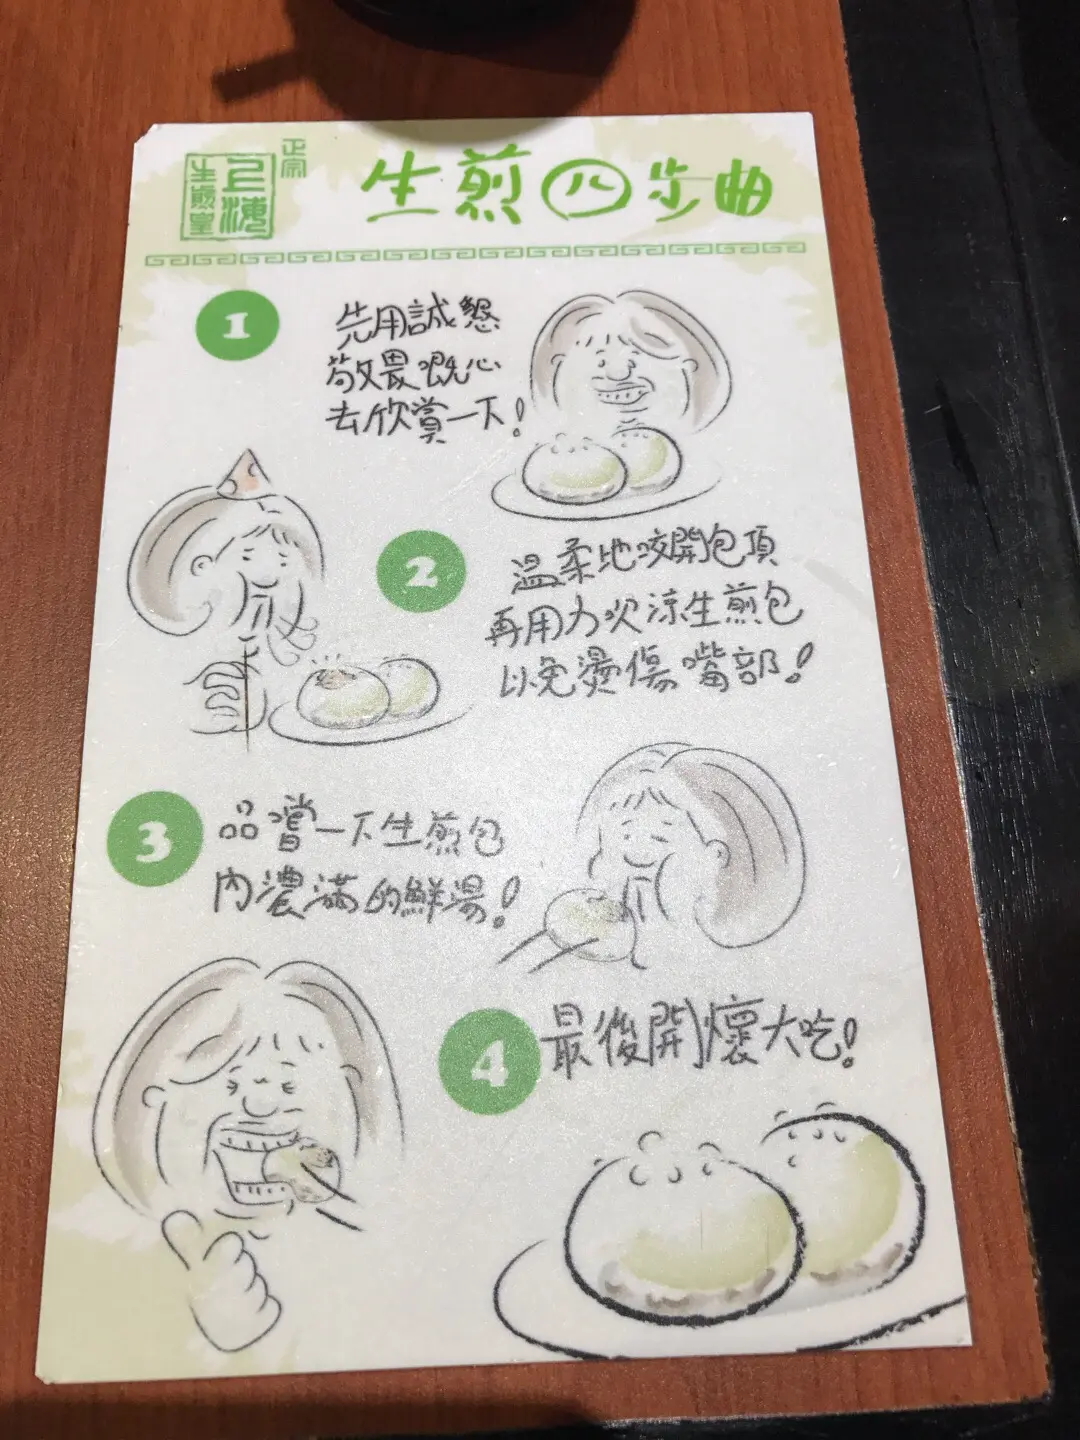 正宗
上海
生煎皇
生煎四步曲
1
先用誠懇
敬畏嘅心
去欣賞一下!
2
溫柔地咬開包頂
再用力吹涼生煎包
以免燙傷嘴部!
3
品嚐一下生煎包
內濃滿的鮮湯!
4
最後開懷大吃!